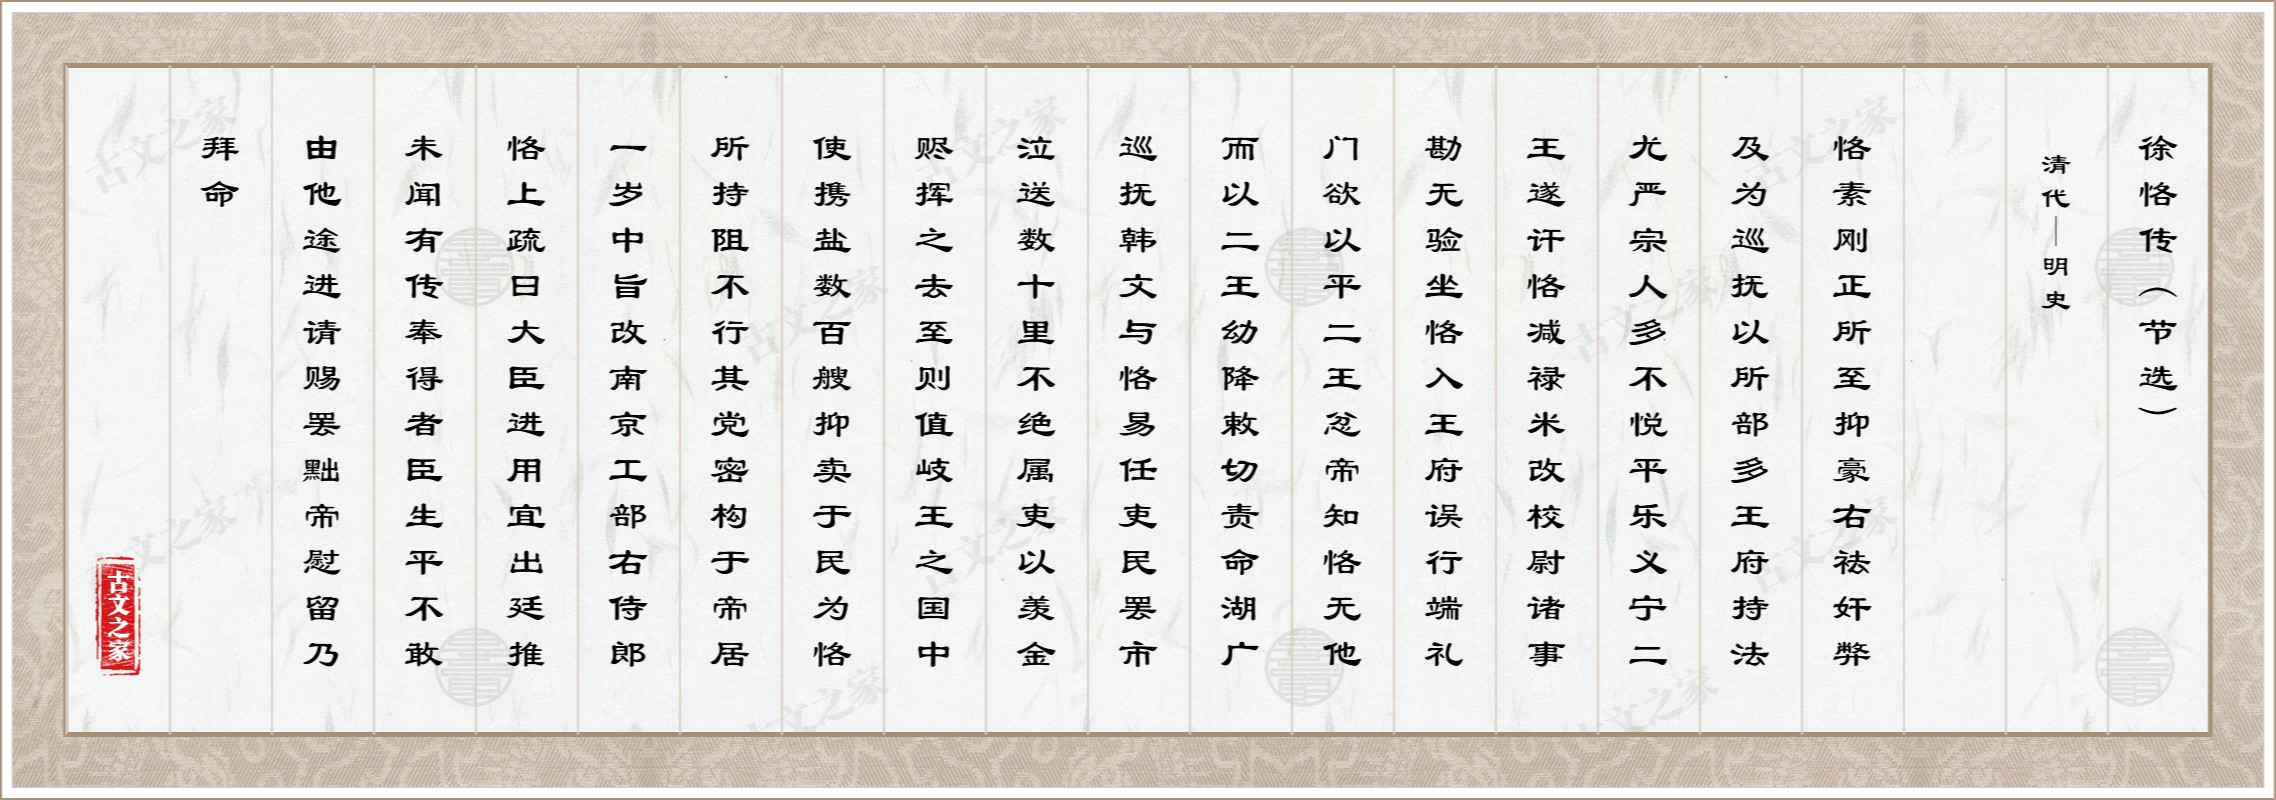 徐恪传（节选）
清代—明史
恪素刚正所至抑豪右祛奸弊
及为巡抚以所部多王府持法
尤严宗人多不悦平乐义宁二
王遂讦恪减禄米改校尉诸事
勘无验坐恪入王府误行端礼
门欲以平二王忿帝知恪无他
而以二王幼降敕切责命湖广
巡抚韩文与恪易任吏民罢市
泣送数十里不绝属吏以羡金
赆挥之去至则值岐王之国中
使携盐数百艘抑卖于民为恪
所持阻不行其党密构于帝居
一岁中旨改南京工部右侍郎
恪上疏曰大臣进用宜出廷推
未闻有传奉得者臣生平不敢
由他途进请赐罢黜帝慰留乃
拜命
古文之家